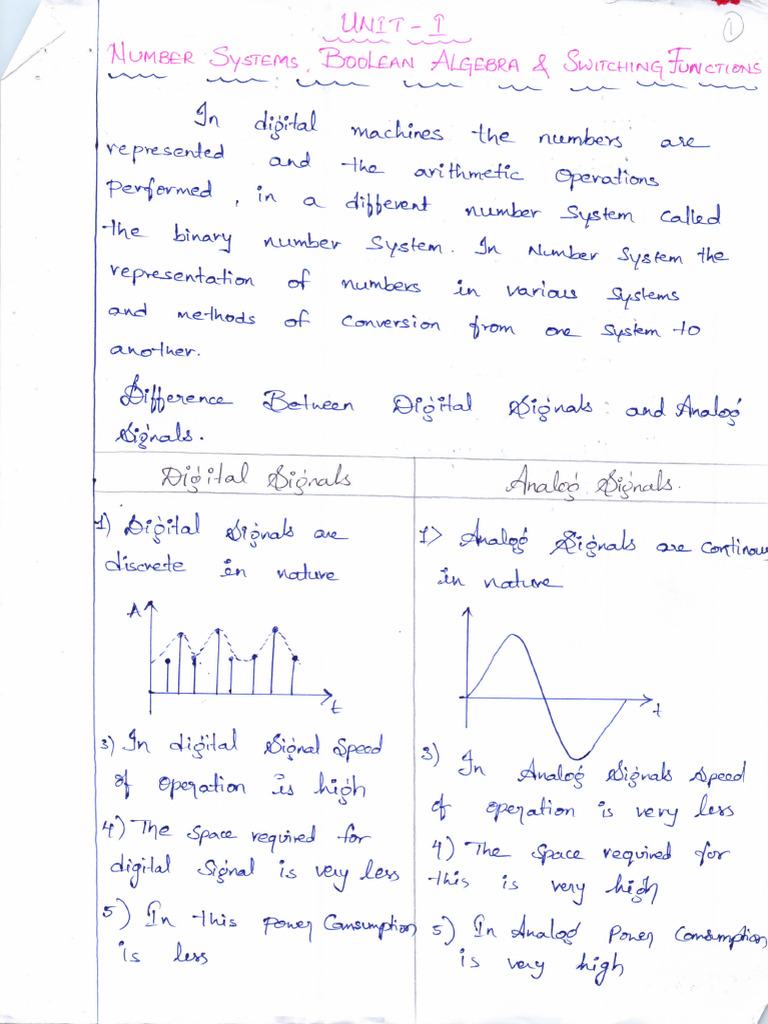 1
UNIT - I
NUMBER SYSTEMS, BOOLEAN ALGEBRA & SWITCHING FUNCTIONS
In digital machines the numbers are
represented and the arithmetic operations
performed, in a different number system called
the binary number system. In Number System the
representation of numbers in various systems
and methods of conversion from one system to
another.
Difference Between Digital Signals and Analog
Signals.
Digital Signals
Analog Signals.
1) Digital Signals are
discrete in nature
A
t
3) In digital signal speed
of operation is high
4) The space required for
digital signal is very less
5) In this power consumption
is less
1> Analog Signals are continous
in nature
t
3) In Analog signals speed
of operation is very less
4) The space required for
this is very high
5) In Analog power consumption
is very high